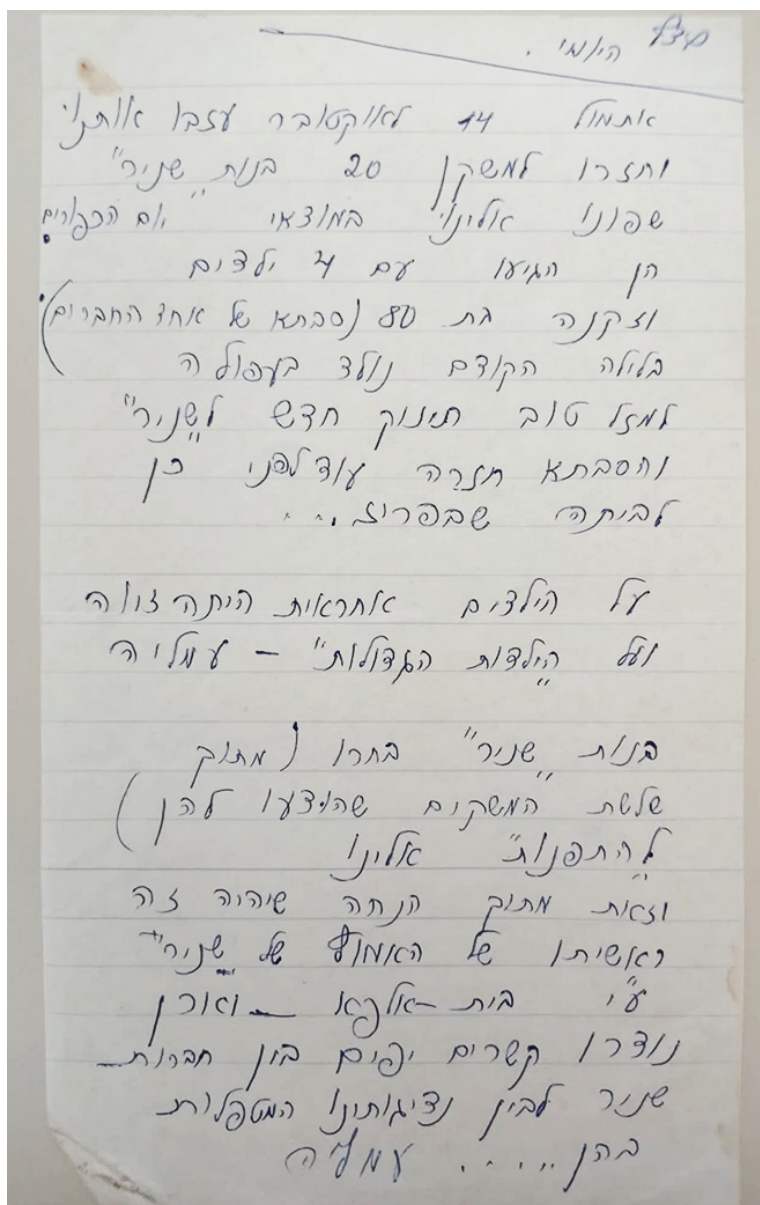 היומי.
אתמול 14 לאוקטובר עזבו אותנו
וחזרו למשקן 20 בנות "שניר"
שפונו אלינו במוצאי יום הכפורים.
הן הגיעו עם 4 ילדים
וזקנה בת 80 (סבתא של אחד החברים).
בלילה הקודם נולד בעפולה
למזל טוב תינוק חדש ל"שניר"
והסבתא חזרה עוד לפני כן
לביתה שבפריז...
על הילדים אחראית היתה
ועל "הילדות הגדולות" – עמליה
בנות "שניר" בחרו (מתוך
שלשת המשקים שהוצעו להן)
ל"התפנות" אלינו
וזאת מתוך הנחה שיהיה זה
ראשיתו של האמוץ של "שניר"
ע"י בית-אלפא –
נוצרו קשרים יפים בין חברות
שניר לבין נציגותינו המטפלות
בהן..... עמליה